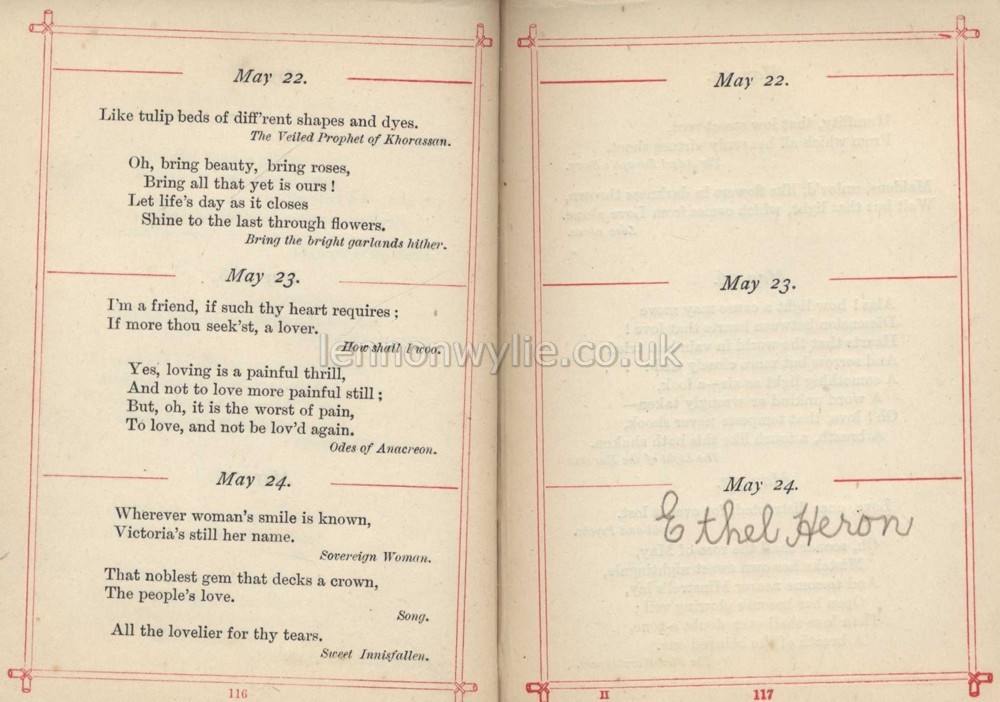 May 22.
Like tulip beds of diff'rent shapes and dyes.
The Veiled Prophet of Khorassan.
Oh, bring beauty, bring roses,
Bring all that yet is ours !
Let life's day as it closes
Shine to the last through flowers.
Bring the bright garlands hither.
May 23.
I'm a friend, if such thy heart requires ;
If more thou seek'st, a lover.
How shall I woo.
Yes, loving is a painful thrill,
And not to love more painful still ;
But, oh, it is the worst of pain,
To love, and not be lov'd again.
Odes of Anacreon.
May 24.
Wherever woman's smile is known,
Victoria's still her name.
Sovereign Woman.
That noblest gem that decks a crown,
The people's love.
Song.
All the lovelier for thy tears.
Sweet Innisfallen.
116
May 22.
May 23.
May 24.
Ethel Heron
II
117
lennonwylie.co.uk